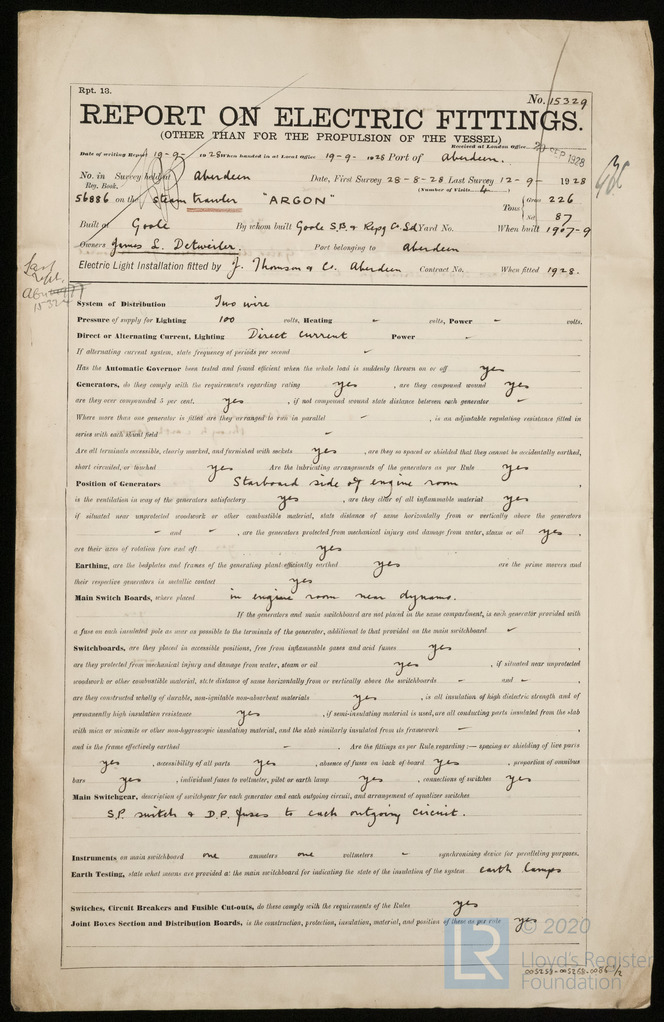 Rpt. 13.
No. 15329
REPORT ON ELECTRIC FITTINGS.
(OTHER THAN FOR THE PROPULSION OF THE VESSEL)
Received at London Office 20 SEP 1928
Date of writing Report 19-9- 1928 When handed in at Local Office 19-9- 1928 Port of Aberdeen.
No. in Survey held at Aberdeen Date, First Survey 28-8-28 Last Survey 12-9- 1928
Reg. Book. (Number of Visits 4)
56886 on the Steam trawler "ARGON" Tons { Gross 226
Net 87
Built at Goole By whom built Goole S.B. & Repg Co. Ld Yard No. When built 1907-9
Owners James L. Detweiler. Port belonging to Aberdeen
Electric Light Installation fitted by J. Thomson & Co. Aberdeen Contract No. When fitted 1928.
System of Distribution Two wire
Pressure of supply for Lighting 100 volts, Heating - volts, Power - volts.
Direct or Alternating Current, Lighting Direct current Power -
If alternating current system, state frequency of periods per second -
Has the Automatic Governor been tested and found efficient when the whole load is suddenly thrown on or off yes
Generators, do they comply with the requirements regarding rating yes , are they compound wound yes
are they over compounded 5 per cent. yes , if not compound wound state distance between each generator -
Where more than one generator is fitted are they arranged to run in parallel - , is an adjustable regulating resistance fitted in
series with each shunt field -
Are all terminals accessible, clearly marked, and furnished with sockets yes , are they so spaced or shielded that they cannot be accidentally earthed,
short circuited, or touched yes Are the lubricating arrangements of the generators as per Rule yes
Position of Generators Starboard side of engine room ,
is the ventilation in way of the generators satisfactory yes , are they clear of all inflammable material yes
if situated near unprotected woodwork or other combustible material, state distance of same horizontally from or vertically above the generators
- and - , are the generators protected from mechanical injury and damage from water, steam or oil yes ,
are their axes of rotation fore and aft yes
Earthing, are the bedplates and frames of the generating plant efficiently earthed yes are the prime movers and
their respective generators in metallic contact yes
Main Switch Boards, where placed in engine room near dynamo.
If the generators and main switchboard are not placed in the same compartment, is each generator provided with
a fuse on each insulated pole as near as possible to the terminals of the generator, additional to that provided on the main switchboard -
Switchboards, are they placed in accessible positions, free from inflammable gases and acid fumes yes ,
are they protected from mechanical injury and damage from water, steam or oil yes , if situated near unprotected
woodwork or other combustible material, state distance of same horizontally from or vertically above the switchboards - and - ,
are they constructed wholly of durable, non-ignitable non-absorbent materials yes , is all insulation of high dielectric strength and of
permanently high insulation resistance yes , if semi-insulating material is used, are all conducting parts insulated from the slab
with mica or micanite or other non-hygroscopic insulating material, and the slab similarly insulated from its framework - ,
and is the frame effectively earthed - . Are the fittings as per Rule regarding:— spacing or shielding of live parts
yes , accessibility of all parts yes , absence of fuses on back of board yes , proportion of omnibus
bars yes , individual fuses to voltmeter, pilot or earth lamp yes , connections of switches yes
Main Switchgear, description of switchgear for each generator and each outgoing circuit, and arrangement of equalizer switches
S.P. switch & D.P. fuses to each outgoing circuit.
Instruments on main switchboard one ammeters one voltmeters - synchronising device for paralleling purposes.
Earth Testing, state what means are provided at the main switchboard for indicating the state of the insulation of the system earth lamps
Switches, Circuit Breakers and Fusible Cut-outs, do these comply with the requirements of the Rules yes
Joint Boxes Section and Distribution Boards, is the construction, protection, insulation, material, and position of these as per rule yes
© 2020
LR
Lloyd's Register
Foundation
005258-005268-0086 1/2